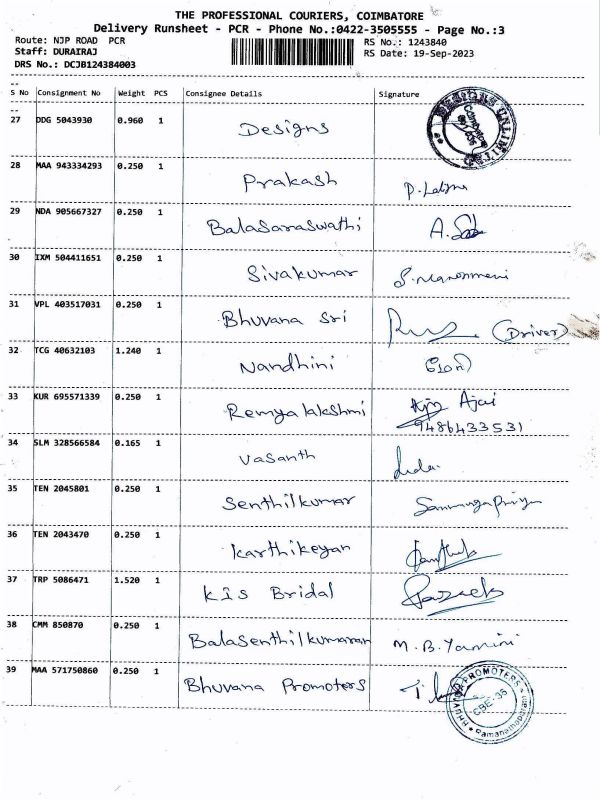 THE PROFESSIONAL COURIERS, COIMBATORE
Delivery Runsheet - PCR - Phone No.:0422-3505555 - Page No.:3
Route: NJP ROAD PCR RS No.: 1243840
Staff: DURAIRAJ RS Date: 19-Sep-2023
DRS No.: DCJB124384003
S No Consignment No Weight PCS Consignee Details Signature
27 DDG 5043930 0.960 1 Designs
DESIGNS UNLIMITED
Coimbatore
28 MAA 943334293 0.250 1 Prakash
29 NDA 905667327 0.250 1 Balasaraswathi
30 IXM 504411651 0.250 1 Sivakumar
31 VPL 403517031 0.250 1 Bhuvana Sri (Driver)
32 TCG 40632103 1.240 1 Nandhini
33 KUR 695571339 0.250 1 Remyalakshmi Ajai
9486433531
34 SLM 328566584 0.165 1 Vasanth
35 TEN 2045801 0.250 1 Senthilkumar
36 TEN 2043470 0.250 1 Karthikeyan
37 TRP 5086471 1.520 1 KIS Bridal
38 CMM 850870 0.250 1 Balasenthilkumaran M.B.Yamini
39 MAA 571750860 0.250 1 Bhuvana Promoters
PROMOTERS
CBE-36